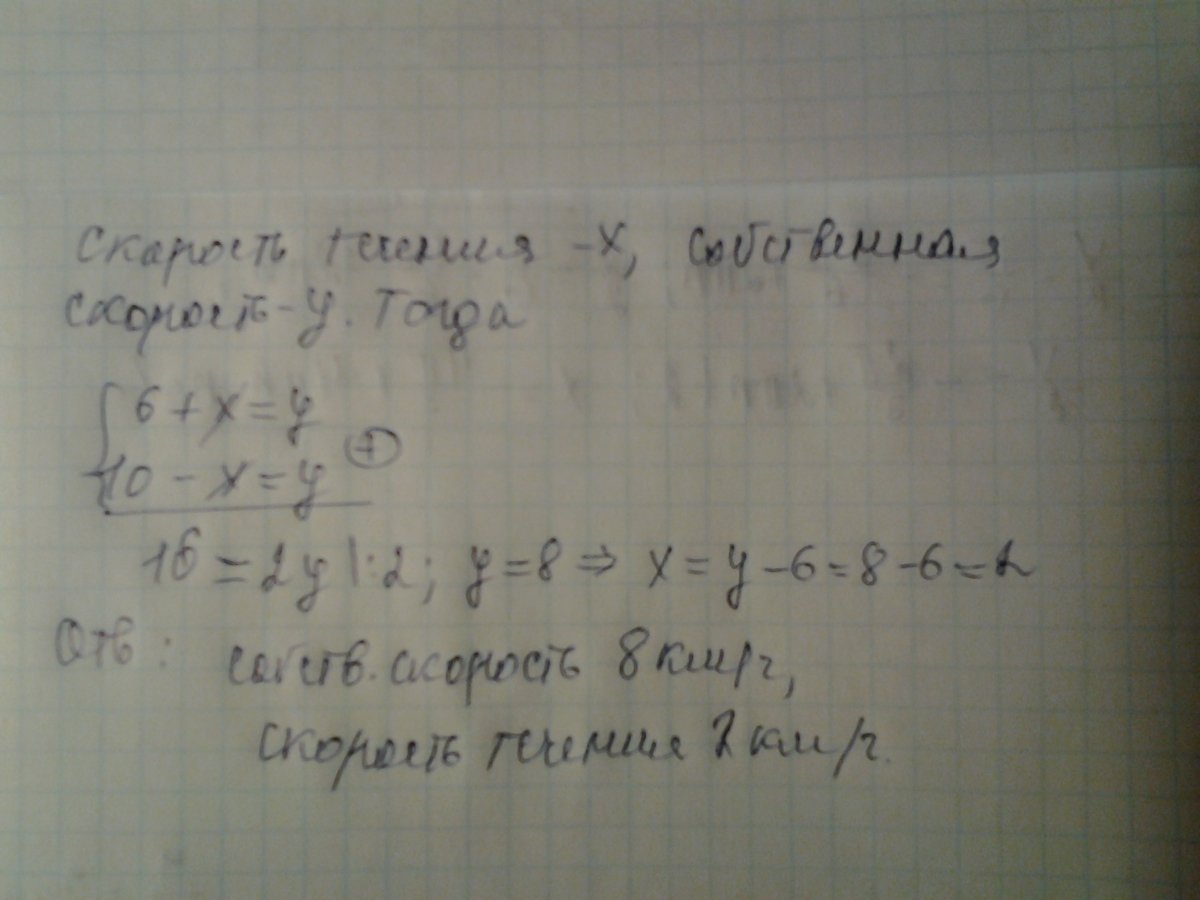 Скорость течения - x, собственная
скорость - y. Тогда
6 + x = y
10 - x = y +
16 = 2y |:2; y = 8 ⇒ x = y - 6 = 8 - 6 = 2
Отв: собств. скорость 8 км/ч,
скорость течения 2 км/ч.